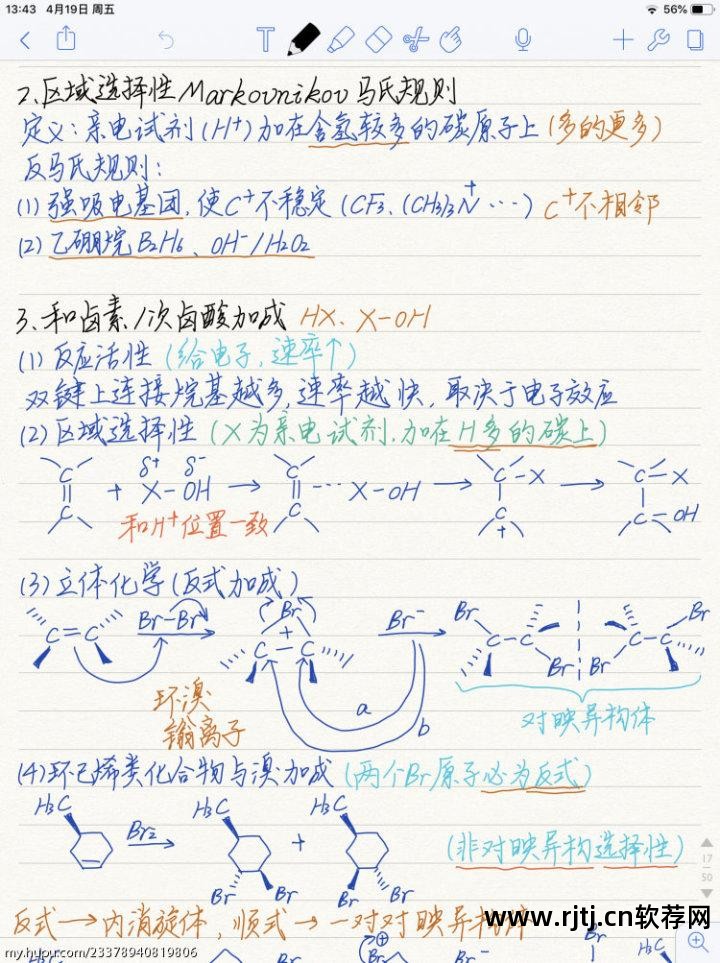 13:43 4月19日 周五
56%
2、区域选择性 Markovnikov 马氏规则
定义：亲电试剂(H⁺)加在含氢较多的碳原子上(多的更多)
反马氏规则：
(1) 强吸电基团，使C⁺不稳定(CF3、(CH3)3N⁺…) C⁺不相邻
(2) 乙硼烷 B2H6、OH⁻/H2O2
3、和卤素/次卤酸加成 HX、X-OH
(1) 反应活性(给电子，速率↑)
双键上连接烷基越多，速率越快，取决于电子效应
(2) 区域选择性(X为亲电试剂，加在H多的碳上)
δ⁺ δ⁻
C C C X C X
+ X-OH → ···X-OH → →
C C C C OH
+
和H⁺位置一致
(3) 立体化学(反式加成)
Br-Br Br Br⁻ Br Br
C=C + C-C C-C C-C
Br Br
环溴
鎓离子
a
b
对映异构体
(4) 环己烯类化合物与溴加成(两个Br原子必为反式)
H3C H3C H3C
Br2 → +
Br Br Br Br
(非对映异构选择性)
17
50
反式→内消旋体，顺式→一对对映异构体
www.rjtj.cn软荐网
my.hupu.com/23378940819806
Br Br⁻ Br H3C